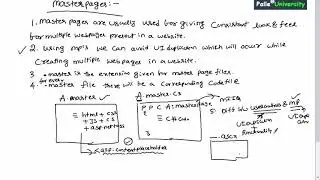 Palle University
Masterpages:-
1. Master pages are usually used for giving consistent look & feel
for multiple webpages present in a website.
2. Using mp's we can avoid UI duplication which will occur while
creating multiple web pages in a website.
3. .master is the extension given for master page files.
for every
4. master file there will be a corresponding code file
A.master
A.master.cs
≡ html + css
+ JS + C#
+ asp.net
<asp:contentplaceholder
P P C A: masterpage
{
≡ C# code
}
5. Diff b/w usercontrols & MP
UI duplication
functionality
.ascx